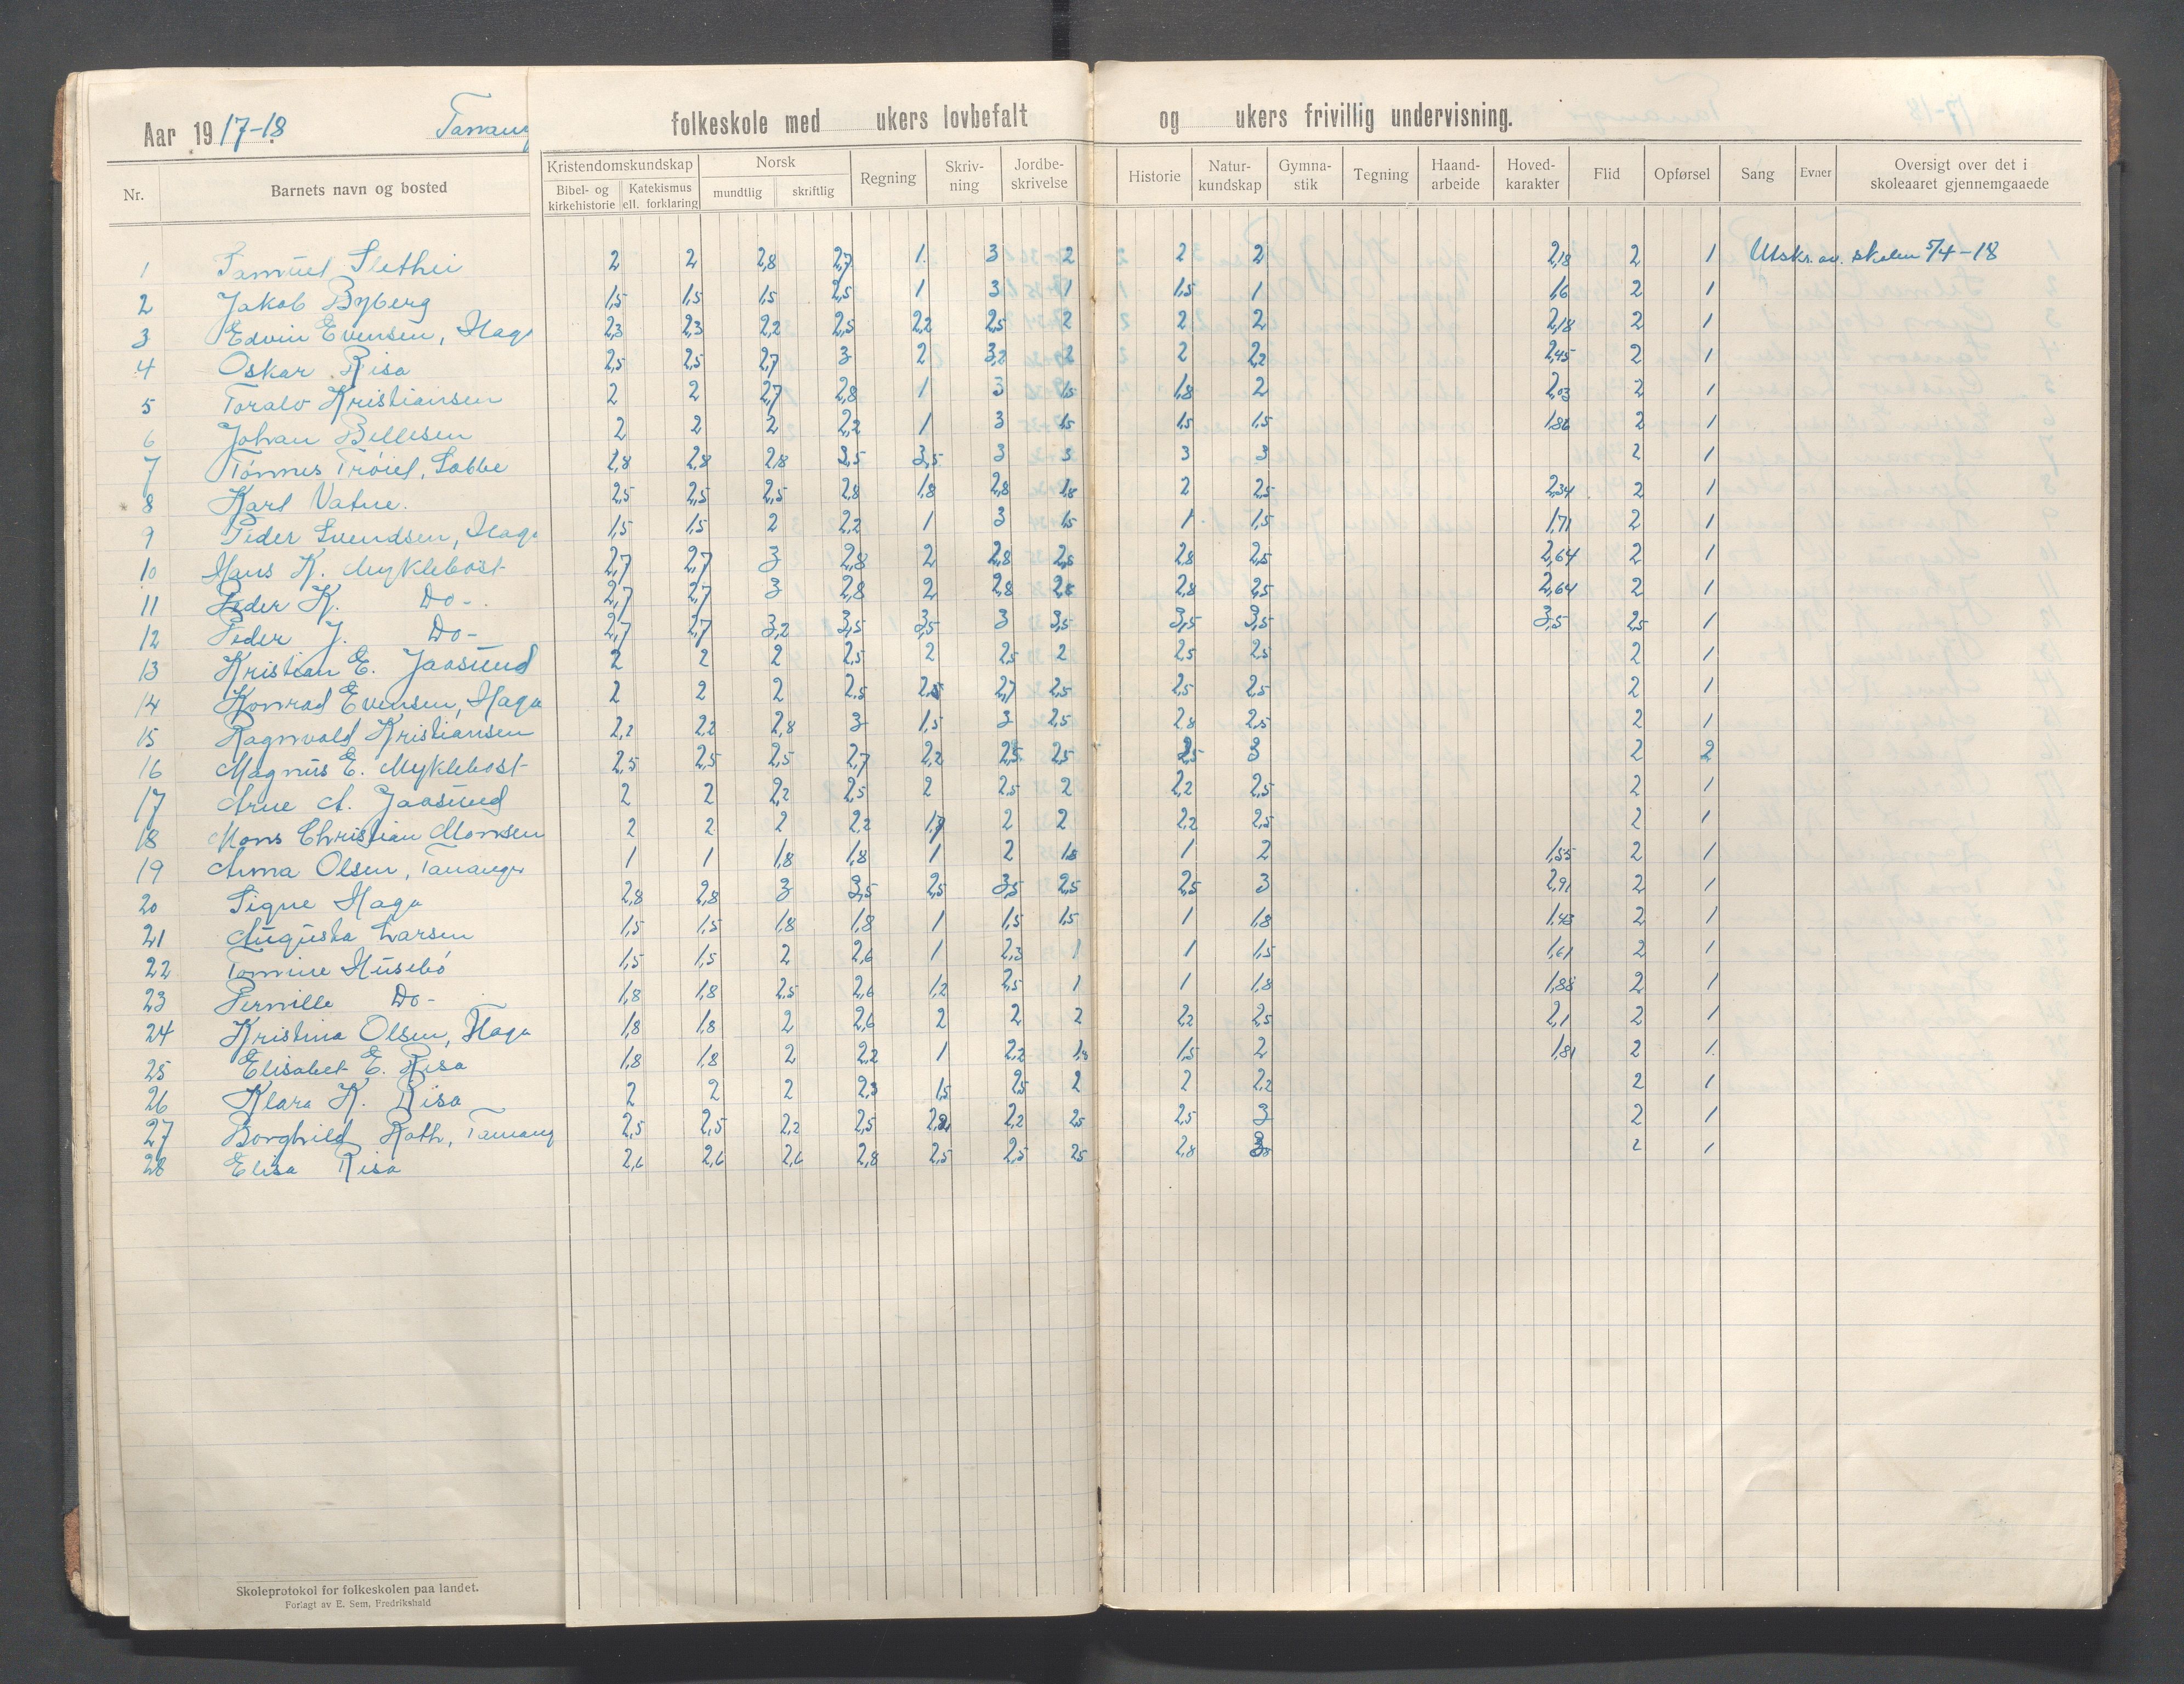 Aar 1917-18. Tanang folkeskole med ukers lovbefalt og ukers frivillig undervisning.
Nr. Barnets navn og bosted Kristendomskundskap Bibel- og kirkehistorie Katekismus ell. forklaring Norsk mundtlig skriftlig Regning Skriv-ning Jordbe-skrivelse Historie Natur-kundskap Gymna-stik Tegning Haand-arbeide Hoved-karakter Flid Opførsel Sang Evner Oversigt over det i skoleaaret gjennemgaaede
1 Samuel Slethei 2 2 2,8 2,7 1 3 2 2 2 2,18 2 1 Utskr. av. skolen 5/4-18
2 Jakob Byberg 1,5 1,5 1,5 2,5 1 3 1 1,5 1 1,6 2 1
3 Edvin Evensen, Haga 2,3 2,3 2,2 2,5 2,2 2,5 2 2 2 2,18 2 1
4 Oskar Risa 2,5 2,5 2,7 3 2 3,2 2 2 2,2 2,45 2 1
5 Toralv Kristiansen 2 2 2,7 2,8 1 3 1,5 1,8 2 2,03 2 1
6 Johan Bellesen 2 2 2 2,2 1 3 1,5 1,5 1,5 1,86 2 1
7 Tønnes Trøiel, Sabbe 2,8 2,8 2,8 3,5 3,5 3 3 3 3 2 1
8 Karl Vatne. 2,5 2,5 2,5 2,8 1,8 2,8 1,8 2 2,5 2,34 2 1
9 Peder Svendsen, Haga 1,5 1,5 2 2,2 1 3 1,5 1 1,5 1,71 2 1
10 Hans K. Myklebost 2,7 2,7 3 2,8 2 2,8 2,5 2,8 2,5 2,64 2 1
11 Peder K. Do- 2,7 2,7 3 2,8 2 2,8 2,5 2,8 2,5 2,64 2 1
12 Peder J. Do- 2,7 2,7 3,2 3,5 3,5 3 3,5 3,5 3,5 3,5 2,5 1
13 Kristian E. Jaasund 2 2 2 2,5 2 2,5 2 2,5 2,5 2 1
14 Konrad Evensen, Haga 2 2 2 2,5 2,5 2,7 2,5 2,5 2,5 2 1
15 Ragnvald Kristiansen 2,2 2,2 2,8 3 1,5 3 2,5 2,8 2,5 2 1
16 Magnus E. Myklebost 2,5 2,5 2,5 2,7 2,2 2,5 2,5 2,5 3 2 2
17 Arne A. Jaasund 2 2 2,2 2,5 2 2,5 2 2,2 2,5 2 1
18 Mons Christian Monsen 2 2 2 2,2 1,7 2 2 2,2 2,5 2 1
19 Anna Olsen, Tananger 1 1 1,8 1,8 1 2 1,8 1 2 1,55 2 1
20 Signe Haga 2,8 2,8 3 3,5 2,5 3,5 2,5 2,5 3 2,91 2 1
21 Augusta Larsen 1,5 1,5 1,8 1,8 1 1,5 1,5 1 1,8 1,43 2 1
22 Tomine Husebø 1,5 1,5 2 2,6 1 2,3 1 1 1,5 1,61 2 1
23 Pernille Do- 1,8 1,8 2,5 2,6 1,2 2,5 1 1 1,8 1,88 2 1
24 Kristina Olsen, Haga 1,8 1,8 2 2,6 2 2 2 2,2 2,5 2,1 2 1
25 Elisabet E. Risa 1,8 1,8 2 2,2 1 2,2 1,8 1,5 2 1,81 2 1
26 Klara K. Risa 2 2 2 2,3 1,5 2,5 2 2 2,2 2 1
27 Borghild Roth, Tanang 2,5 2,5 2,2 2,5 2,2 2,5 2,5 3 2 1
28 Elisa Risa 2,6 2,6 2,6 2,8 2,5 2,5 2,5 2,8 2 1
Skoleprotokol for folkeskolen paa landet.
Forlagt av E. Sem, Fredrikshald